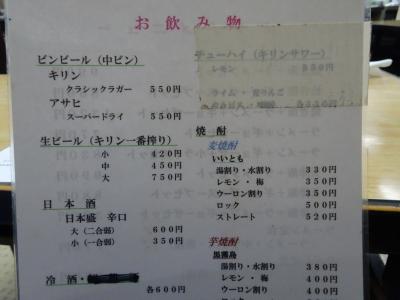 お飲み物
ビンビール（中ビン）
キリン
クラシックラガー 550円
アサヒ
スーパードライ 550円
生ビール（キリン一番搾り）
小 420円
中 450円
大 750円
日本酒
日本盛 辛口
大（二合弱） 600円
小（一合弱） 350円
冷酒・
各600円
チューハイ（キリンサワー）
レモン 350円
焼酎
麦焼酎
いいとも
湯割り・水割り 330円
レモン・梅 350円
ウーロン割り 350円
ロック 500円
ストレート 520円
芋焼酎
黒霧島
湯割り・水割り 380円
レモン・梅 400円
ウーロン割り 400円